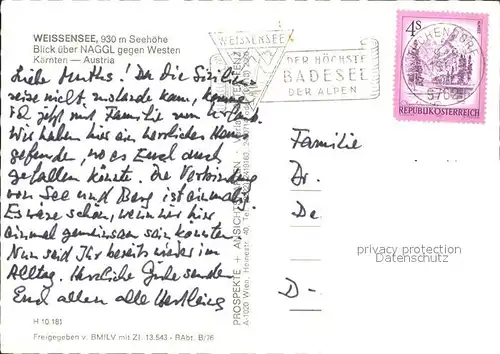 WEISSENSEE, 930 m Seehöhe
Blick über NAGGL gegen Westen
Kärnten — Austria
Liebe ! Da die Sizilien
reise nicht zustande kam,
jetzt mit Familie zum Urlaub.
Wir haben hier ein herrliches Haus
gefunden, wo es Euch auch
gefallen könnte. Die Verbindung
von See und Berg ist einmalig.
Es wäre schön, wenn wir hier
einmal gemeinsam sein könnten.
Nun seid Ihr bereits wieder im
Alltag. Herzliche Grüße sendet
Euch allen alle
H 10.181
Freigegeben v. BMILV mit Zl. 13.543 - RAbt. B/76
PROSPEKTE + ANSICHTSKARTEN
A-1020 Wien, Heinestr. 40, Tel.
WEISSENSEE
DER HÖCHSTE
BADESEE
DER ALPEN
4S
REPUBLIK ÖSTERREICH
Familie
Dr.
De
D-
privacy protection
©ansichtskartenversand.com